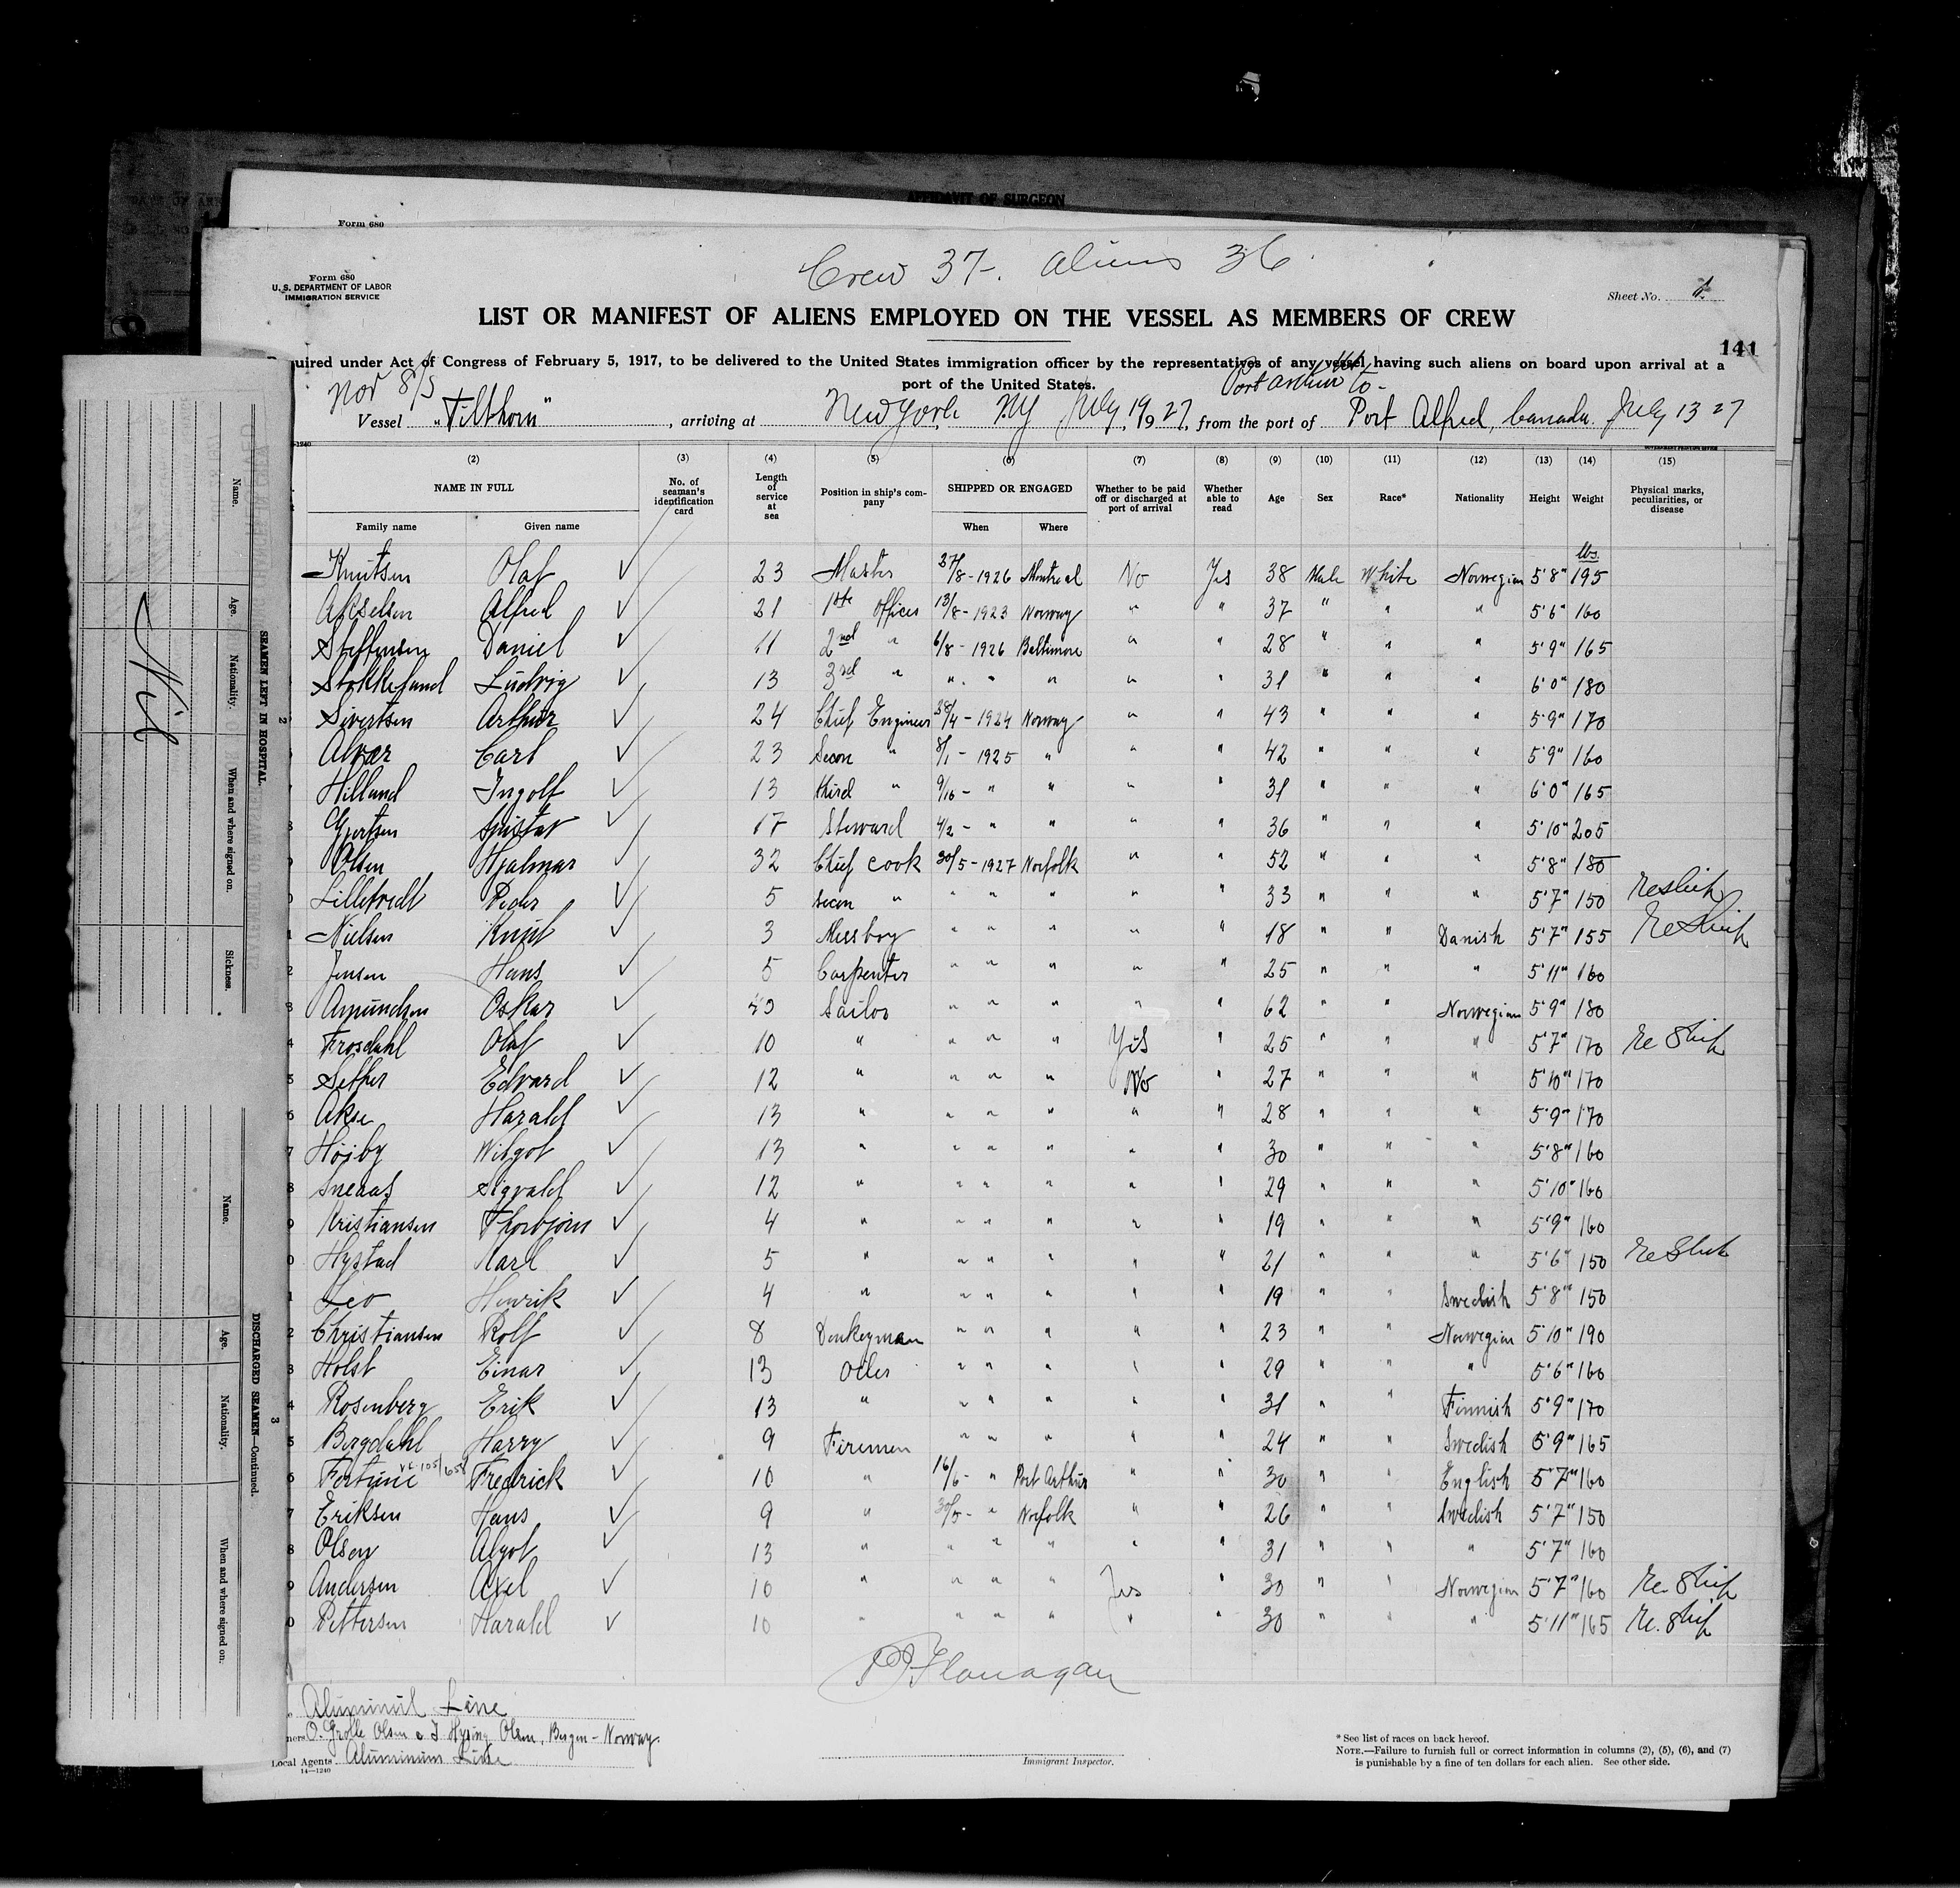 AFFIDAVIT OF SURGEON
Form 680
Crew 37. Aliens 36
Form 680
U. S. DEPARTMENT OF LABOR
IMMIGRATION SERVICE
Sheet No. 1.
LIST OR MANIFEST OF ALIENS EMPLOYED ON THE VESSEL AS MEMBERS OF CREW
141
uired under Act of Congress of February 5, 1917, to be delivered to the United States immigration officer by the representatives of any vessel having such aliens on board upon arrival at a
port of the United States.
Nor 8/5
Port Arthur to -
Vessel "Tilthorn", arriving at New York NY July, 19 1927, from the port of Port Alfred, Canada. July 13 27
(2) (3) (4) (5) (6) (7) (8) (9) (10) (11) (12) (13) (14) (15)
NAME IN FULL No. of seaman's identification card Length of service at sea Position in ship's company SHIPPED OR ENGAGED Whether to be paid off or discharged at port of arrival Whether able to read Age Sex Race* Nationality Height Weight Physical marks, peculiarities, or disease
Family name Given name When Where
lbs.
Knutsen Olaf ✓ 23 Master 27/8-1926 Montreal No Yes 38 Male White Norwegian 5'8" 195
Akselsen Alfred ✓ 21 1ste Officer 13/8-1923 Norway " " 37 " " " 5'6" 160
Steffensen Daniel ✓ 11 2nd " 6/8-1926 Baltimore " " 28 " " " 5'9" 165
Stokkelund Ludvig ✓ 13 3rd " " " " " " 31 " " " 6'0" 180
Sivertsen Arthur ✓ 24 Chief Engineer 28/4-1924 Norway " " 43 " " " 5'9" 170
Alvær Carl ✓ 23 Secon " 8/1-1925 " " " 42 " " " 5'9" 160
Hilland Ingolf ✓ 13 third " 9/10-" " " " 31 " " " 6'0" 165
Gjertsen Gustav ✓ 17 Steward 4/2-" " " " 36 " " " 5'10" 205
Olsen Hjalmar ✓ 32 Chief cook 30/5-1927 Norfolk " " 52 " " " 5'8" 180
Lilletvedt Peder ✓ 5 secon " " " " " " 33 " " " 5'7" 150 reship
Nielsen Knut ✓ 3 Messboy " " " " " 18 " " Danish 5'7" 155 Reship
Jensen Hans ✓ 5 Carpenter " " " " " 25 " " " 5'11" 160
Amundsen Oskar ✓ 43 Sailor " " " " " 62 " " Norwegian 5'9" 180
Frosdahl Olaf ✓ 10 " " " " Yes " 25 " " " 5'7" 170 Re Ship
Sether Edvard ✓ 12 " " " " No " 27 " " " 5'10" 170
Akse Harald ✓ 13 " " " " " " 28 " " " 5'9" 170
Höiby Wilgot ✓ 13 " " " " " " 30 " " " 5'8" 160
Sneaas Sigvald ✓ 12 " " " " " " 29 " " " 5'10" 160
Kristiansen Thorbjörn ✓ 4 " " " " " " 19 " " " 5'9" 160
Hystad Karl ✓ 5 " " " " " " 21 " " " 5'6" 150 Re Ship
Leo Henrik ✓ 4 " " " " " " 19 " " Swedish 5'8" 150
Christiansen Rolf ✓ 8 Donkeyman " " " " " 23 " " Norwegian 5'10" 190
Holst Einar ✓ 13 Oiler " " " " " 29 " " " 5'6" 160
Rosenberg Erik ✓ 13 " " " " " " 31 " " Finnish 5'9" 170
Bergdahl Harry ✓ 9 Firemen " " " " " 24 " " Swedish 5'9" 165
Fortune V.C. 105/658 Fredrick ✓ 10 " 16/6-" Port Arthur " " 30 " " English 5'7" 160
Eriksen Hans ✓ 9 " 30/5-" Norfolk " " 26 " " Swedish 5'7" 150
Olsen Algot ✓ 13 " " " " " " 31 " " " 5'7" 160
Andersen Axel ✓ 10 " " " " Yes " 30 " " Norwegian 5'7" 160 Re. Ship
Pettersen Harald ✓ 10 " " " " " " 30 " " " 5'11" 165 Re. Ship
Flanagan
Aluminium Line
ners O. Grolle Olsen & J. Hysing Olsen, Bergen - Norway.
Local Agents Aluminum Line
14—1240
Immigrant Inspector.
* See list of races on back hereof.
NOTE.—Failure to furnish full or correct information in columns (2), (5), (6), and (7)
is punishable by a fine of ten dollars for each alien. See other side.
2
SEAMEN LEFT IN HOSPITAL.
Name. Age. Nationality. When and where signed on. Sickness.
Nil
3
DISCHARGED SEAMEN—Continued.
Name. Age. Nationality. When and where signed on.